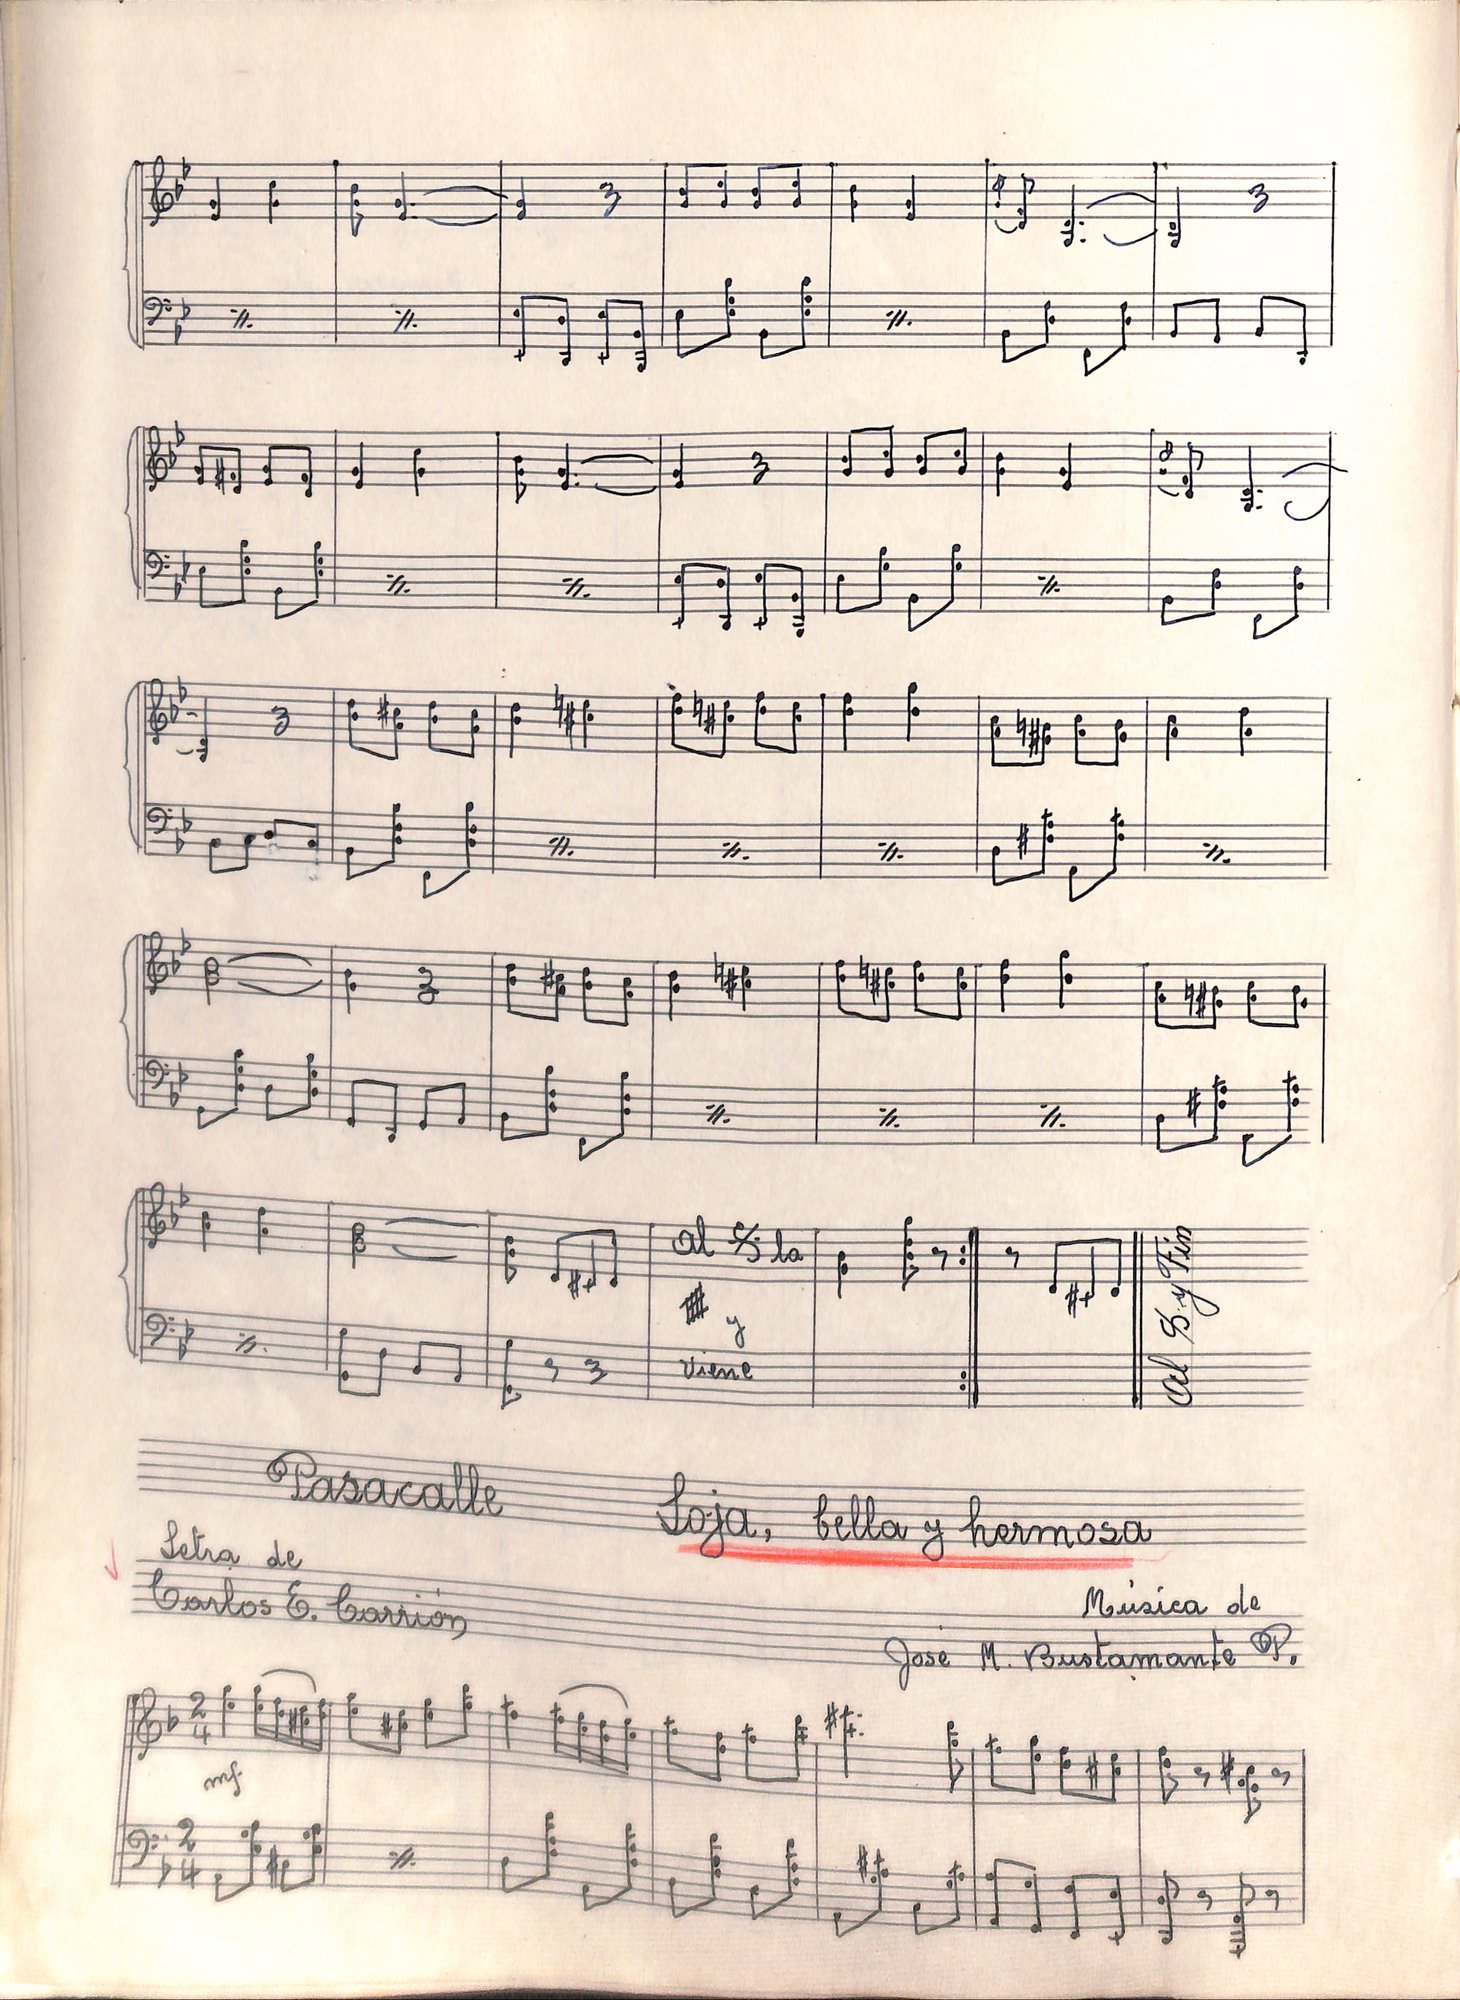 Al 𝄋 la
# y
viene
Al 𝄋 y Fin
Pasacalle Loja, bella y hermosa
Letra de
Carlos E. Carrión
Música de
José M. Bustamante P.
2/4
mf.
2/4